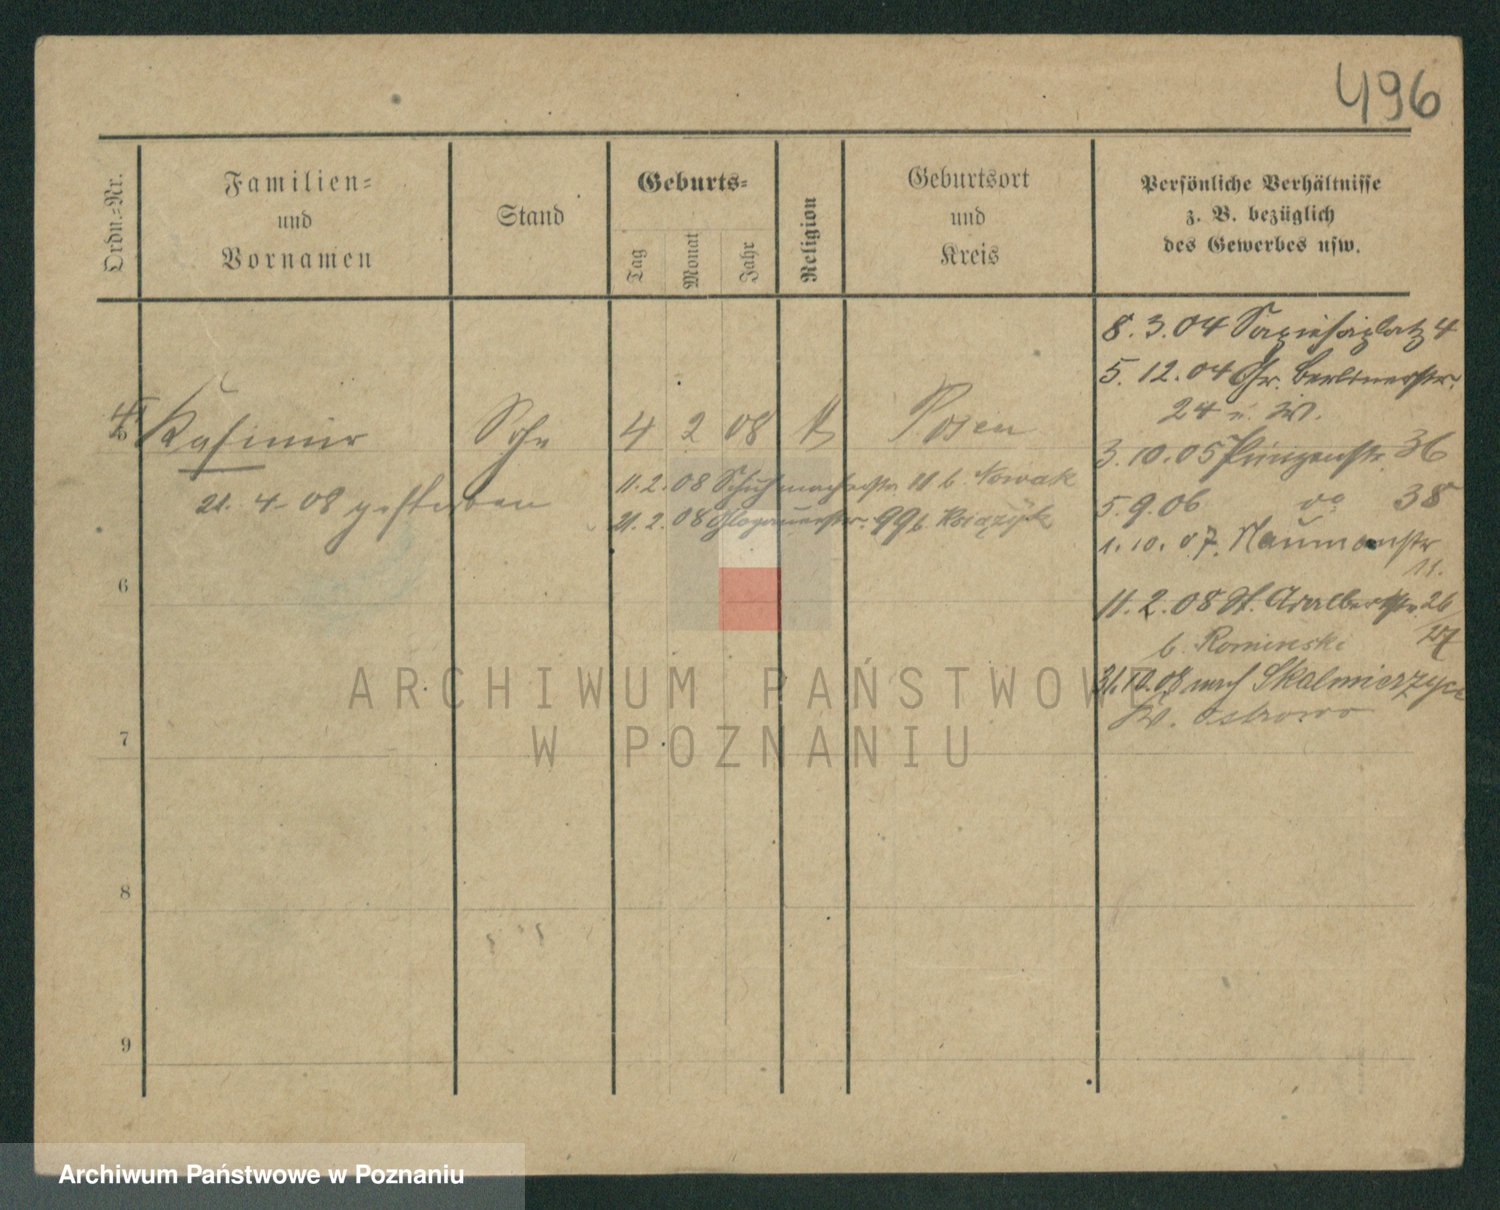 496
Ordn.-Nr.
Familien-
und
Vornamen
Stand
Geburts-
Tag
Monat
Jahr
Religion
Geburtsort
und
Kreis
Persönliche Verhältnisse
z. B. bezüglich
des Gewerbes usw.
8.3.04 Sapiehaplatz 4
5.12.04 Gr. Berlinerstr.
24 u. W.
3.10.05 36
5.9.06 do 38
1.10.07. Naumannstr
11.
11.2.08 St. Adalbertstr. 26
27
b. Rominski
31.10.08 nach Skalmierzyce
Kr. Ostrowo
Kasimir Sohn 4 2 08 k Posen
21.4.08 gestorben
11.2.08 Schuhmacherstr. 11 b. Nowak
21.2.08 Glogauerstr. 99 b. Ksiazyk
6
7
8
9
ARCHIWUM PAŃSTWOWE
W POZNANIU
Archiwum Państwowe w Poznaniu